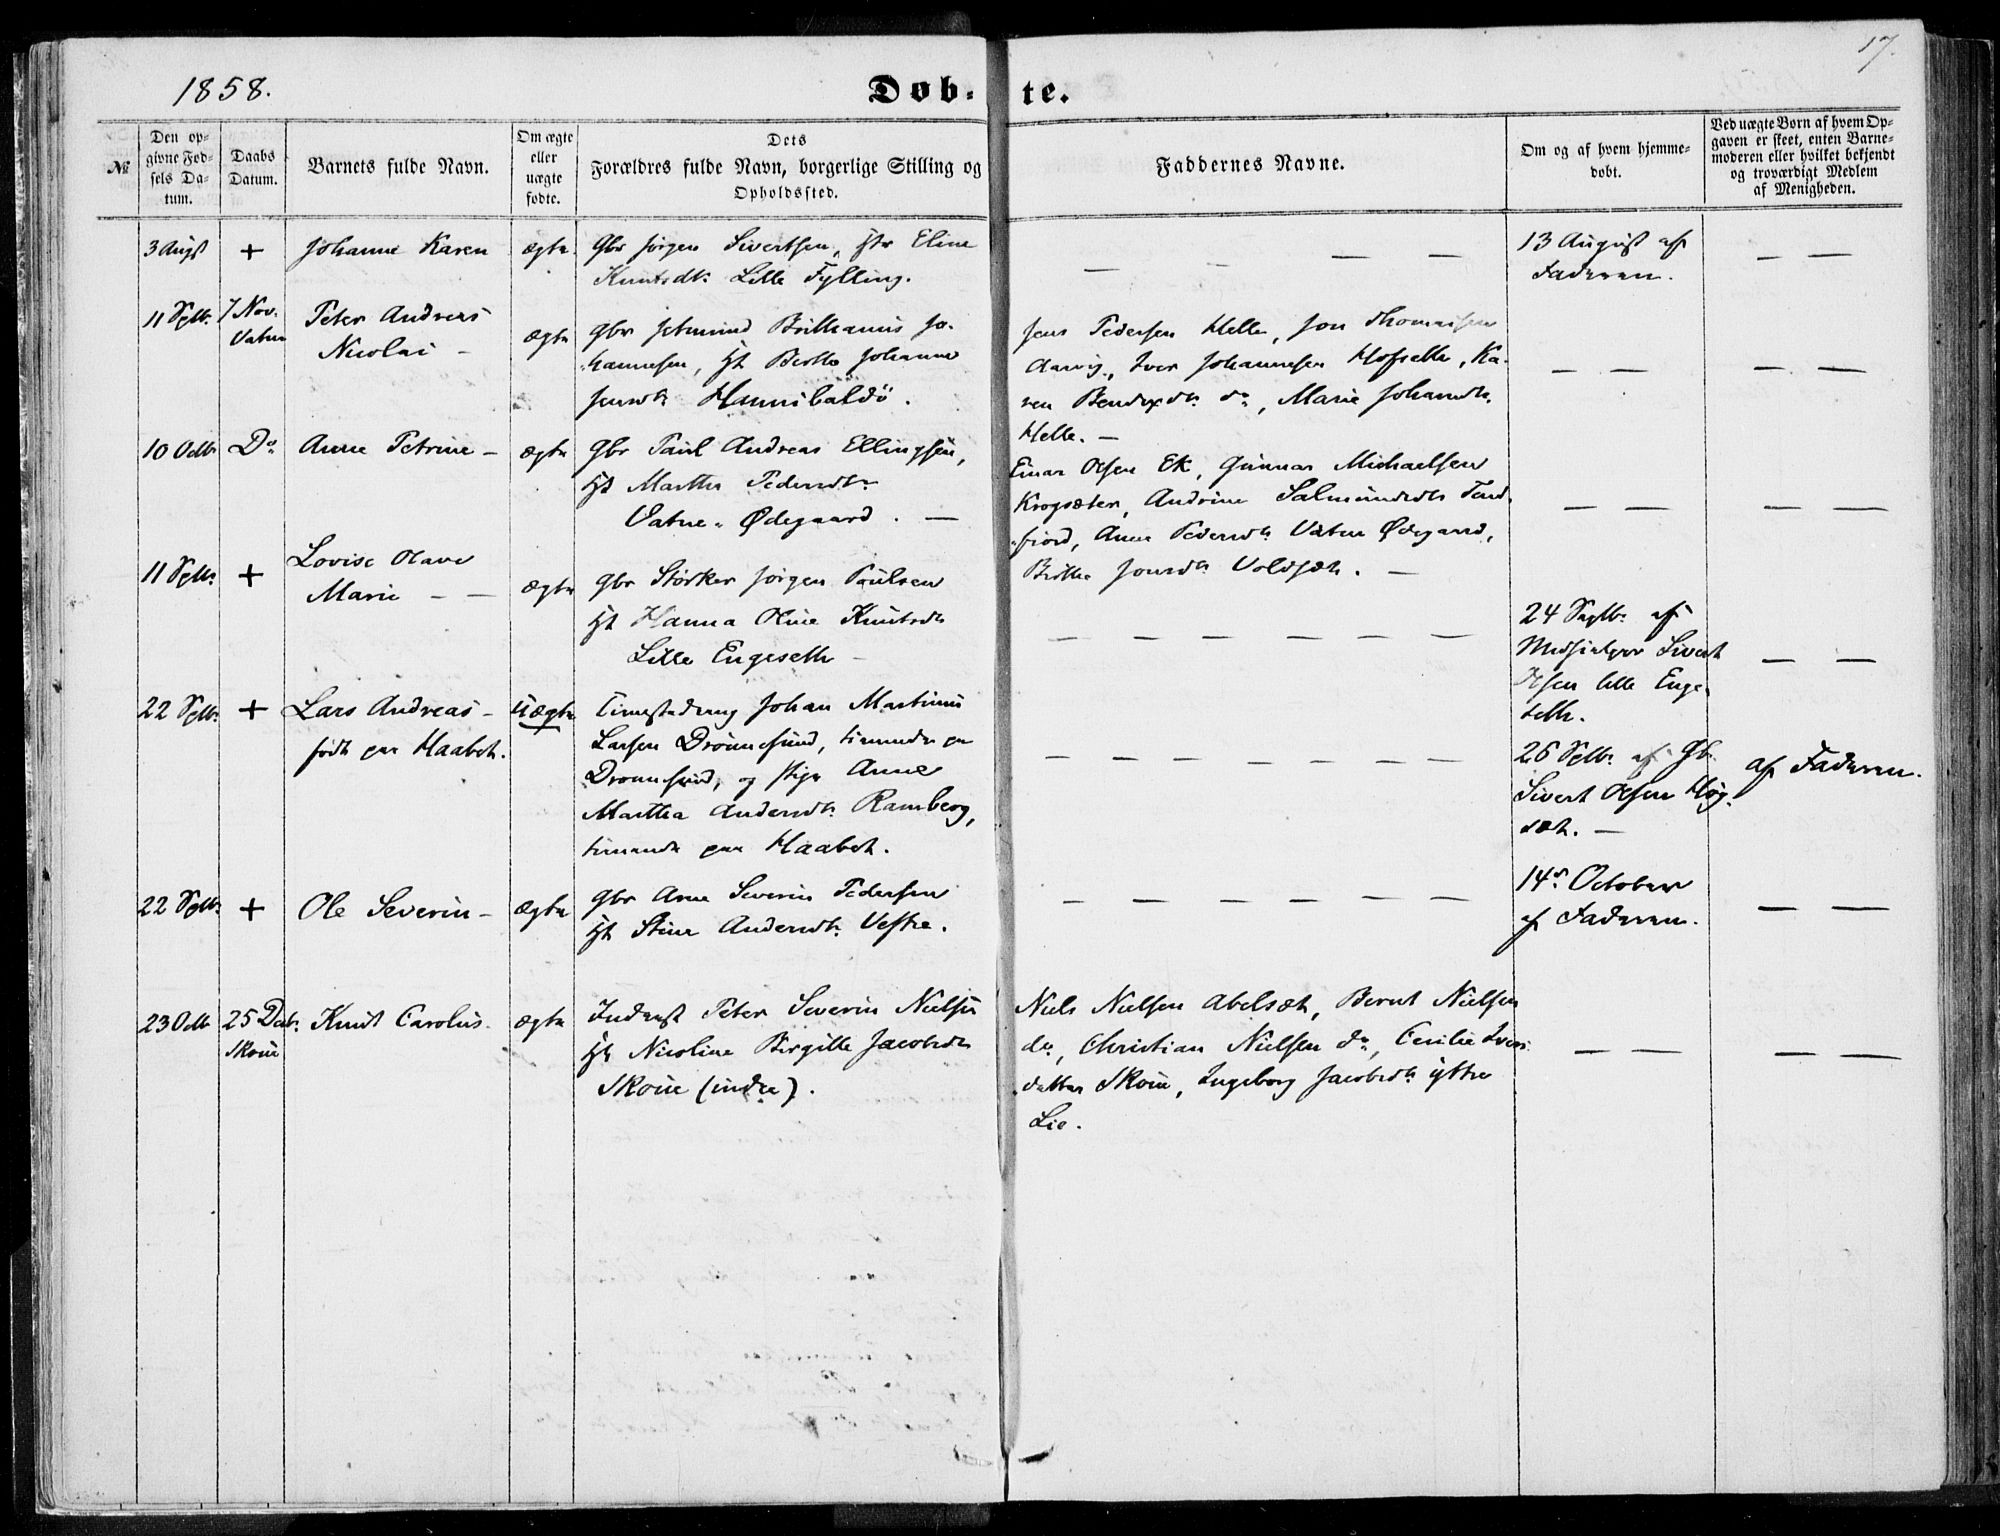 17.
1858.
Døb-
te.
№
Den op-
givne Fød-
sels Da-
tum.
Daabs
Datum.
Barnets fulde Navn.
Om ægte
eller
uægte
fødte.
Dets
Forældres fulde Navn, borgerlige Stilling og
Opholdssted.
Faddernes Navne.
Om og af hvem hjemme-
døbt.
Ved uægte Børn af hvem Op-
gaven er skeet, enten Barne-
moderen eller hvilket bekjendt
og troværdigt Medlem
af Menigheden.
3 Augst
+
Johanne Karen
ægte
Gbr Jørgen Sivertsen, Eline
Knutsdt. Lille Fylling.
— — — —
13 August af
Faderen.
— —
11 Sptbr.
7 Nov.
Vatne
Peter Andreas
Nicolai —
ægte
Gbr Jetmund Brithanius Jo-
hannesen, Hst Berthe Johanne
Jensdt. Hannibaldø.
Jens Pedersen Helle, Jon Thomassen
Iver Johannesen Hofseth, Ka-
ren Bendixdt. do, Marie Johansdt.
Helle. —
— —
— —
10 Octbr
Do
Anne Petrine —
ægte
Gbr Paul Andreas Ellingsen,
Hst Marthe Pedersdtr
Vatne-Ødegaard. —
Einar Olsen Ek, Gunnar Michaelsen
Krogsæter, Andrine Salmundsdt. Tend-
fjord, Anne Pedersdt. Vatne Ødegaard,
Brithe Jonsdt. Voldsæt. —
— —
— —
11 Sptbr.
+
Lovise Olave
Marie — —
ægte
Gbr Størker Jørgen Paulsen
Hst Hanna Oline Knutsdt.
Lille Engeseth —
— — — — — —
24 Septbr. af
Medhjelper Sivert
Olsen lille Enge-
seth.
— —
22 Sptbr.
+
Lars Andreas —
født paa Haabet.
Uægte
Johan Martinus
Larsen Drønnesund, tienende paa
Drønnesund, og Pige Anne
Marthea Andersdt. Ramberg,
tienende paa Haabet.
— — — — — —
26 Sptbr. af Gbr
Sivert Olsen Høg-
sæt. —
af Faderen.
22 Sptbr.
+
Ole Severin —
ægte
Gbr Arne Severin Pedersen
Hst Stine Andersdt. Vestre.
— — — — — —
14de October
af Faderen.
— —
23 Octbr
25 Decbr.
Skoue
Knud Carolus
ægte
Inderst Peter Severin Nielsen
Hst Nicoline Birgitte Jacobsdt.
Skoue (indre).
Niels Nielsen Abelsæt, Bernt Nielsen
do, Christian Nielsen do, Cecilie Ivers-
datter Skoue, Ingeborg Jacobsdt. yttre
Lie.
— —
— —